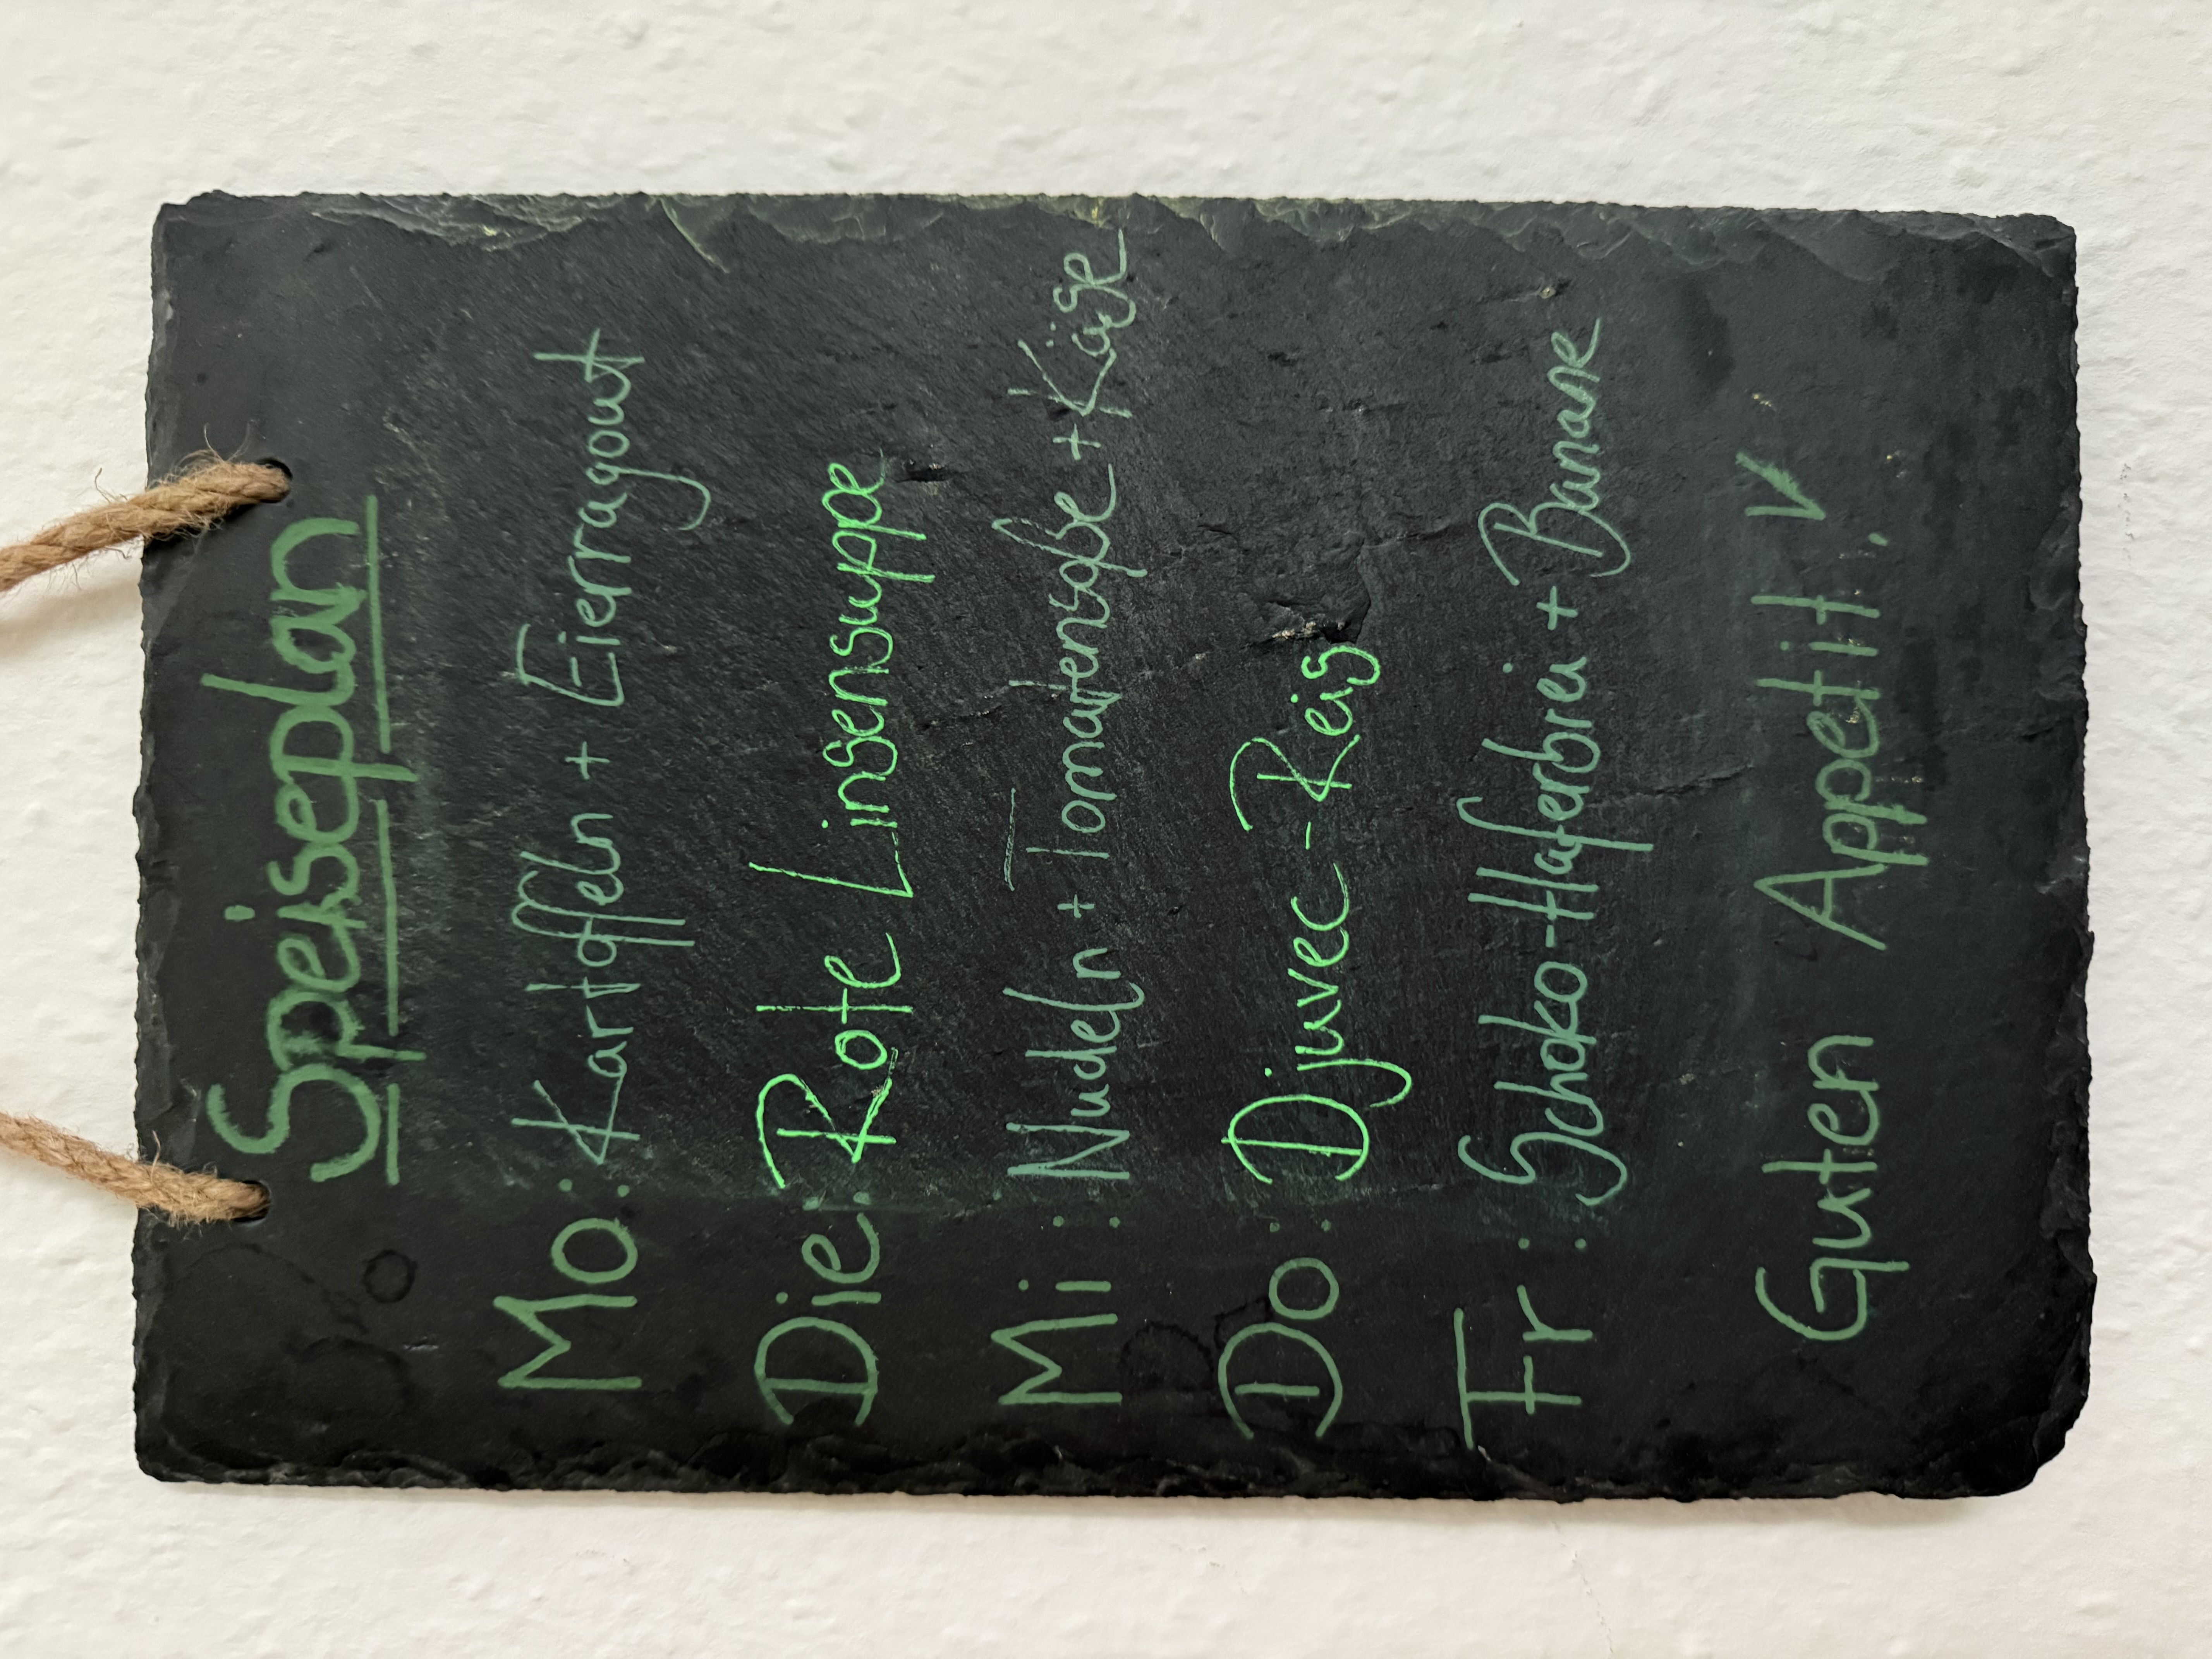 Speiseplan
Mo: Kartoffeln + Eierragout
Die: Rote Linsensuppe
Mi: Nudeln + Tomatensoße + Käse
Do: Djuvec-Reis
Fr: Schoko-Haferbrei + Banane
Guten Appetit!